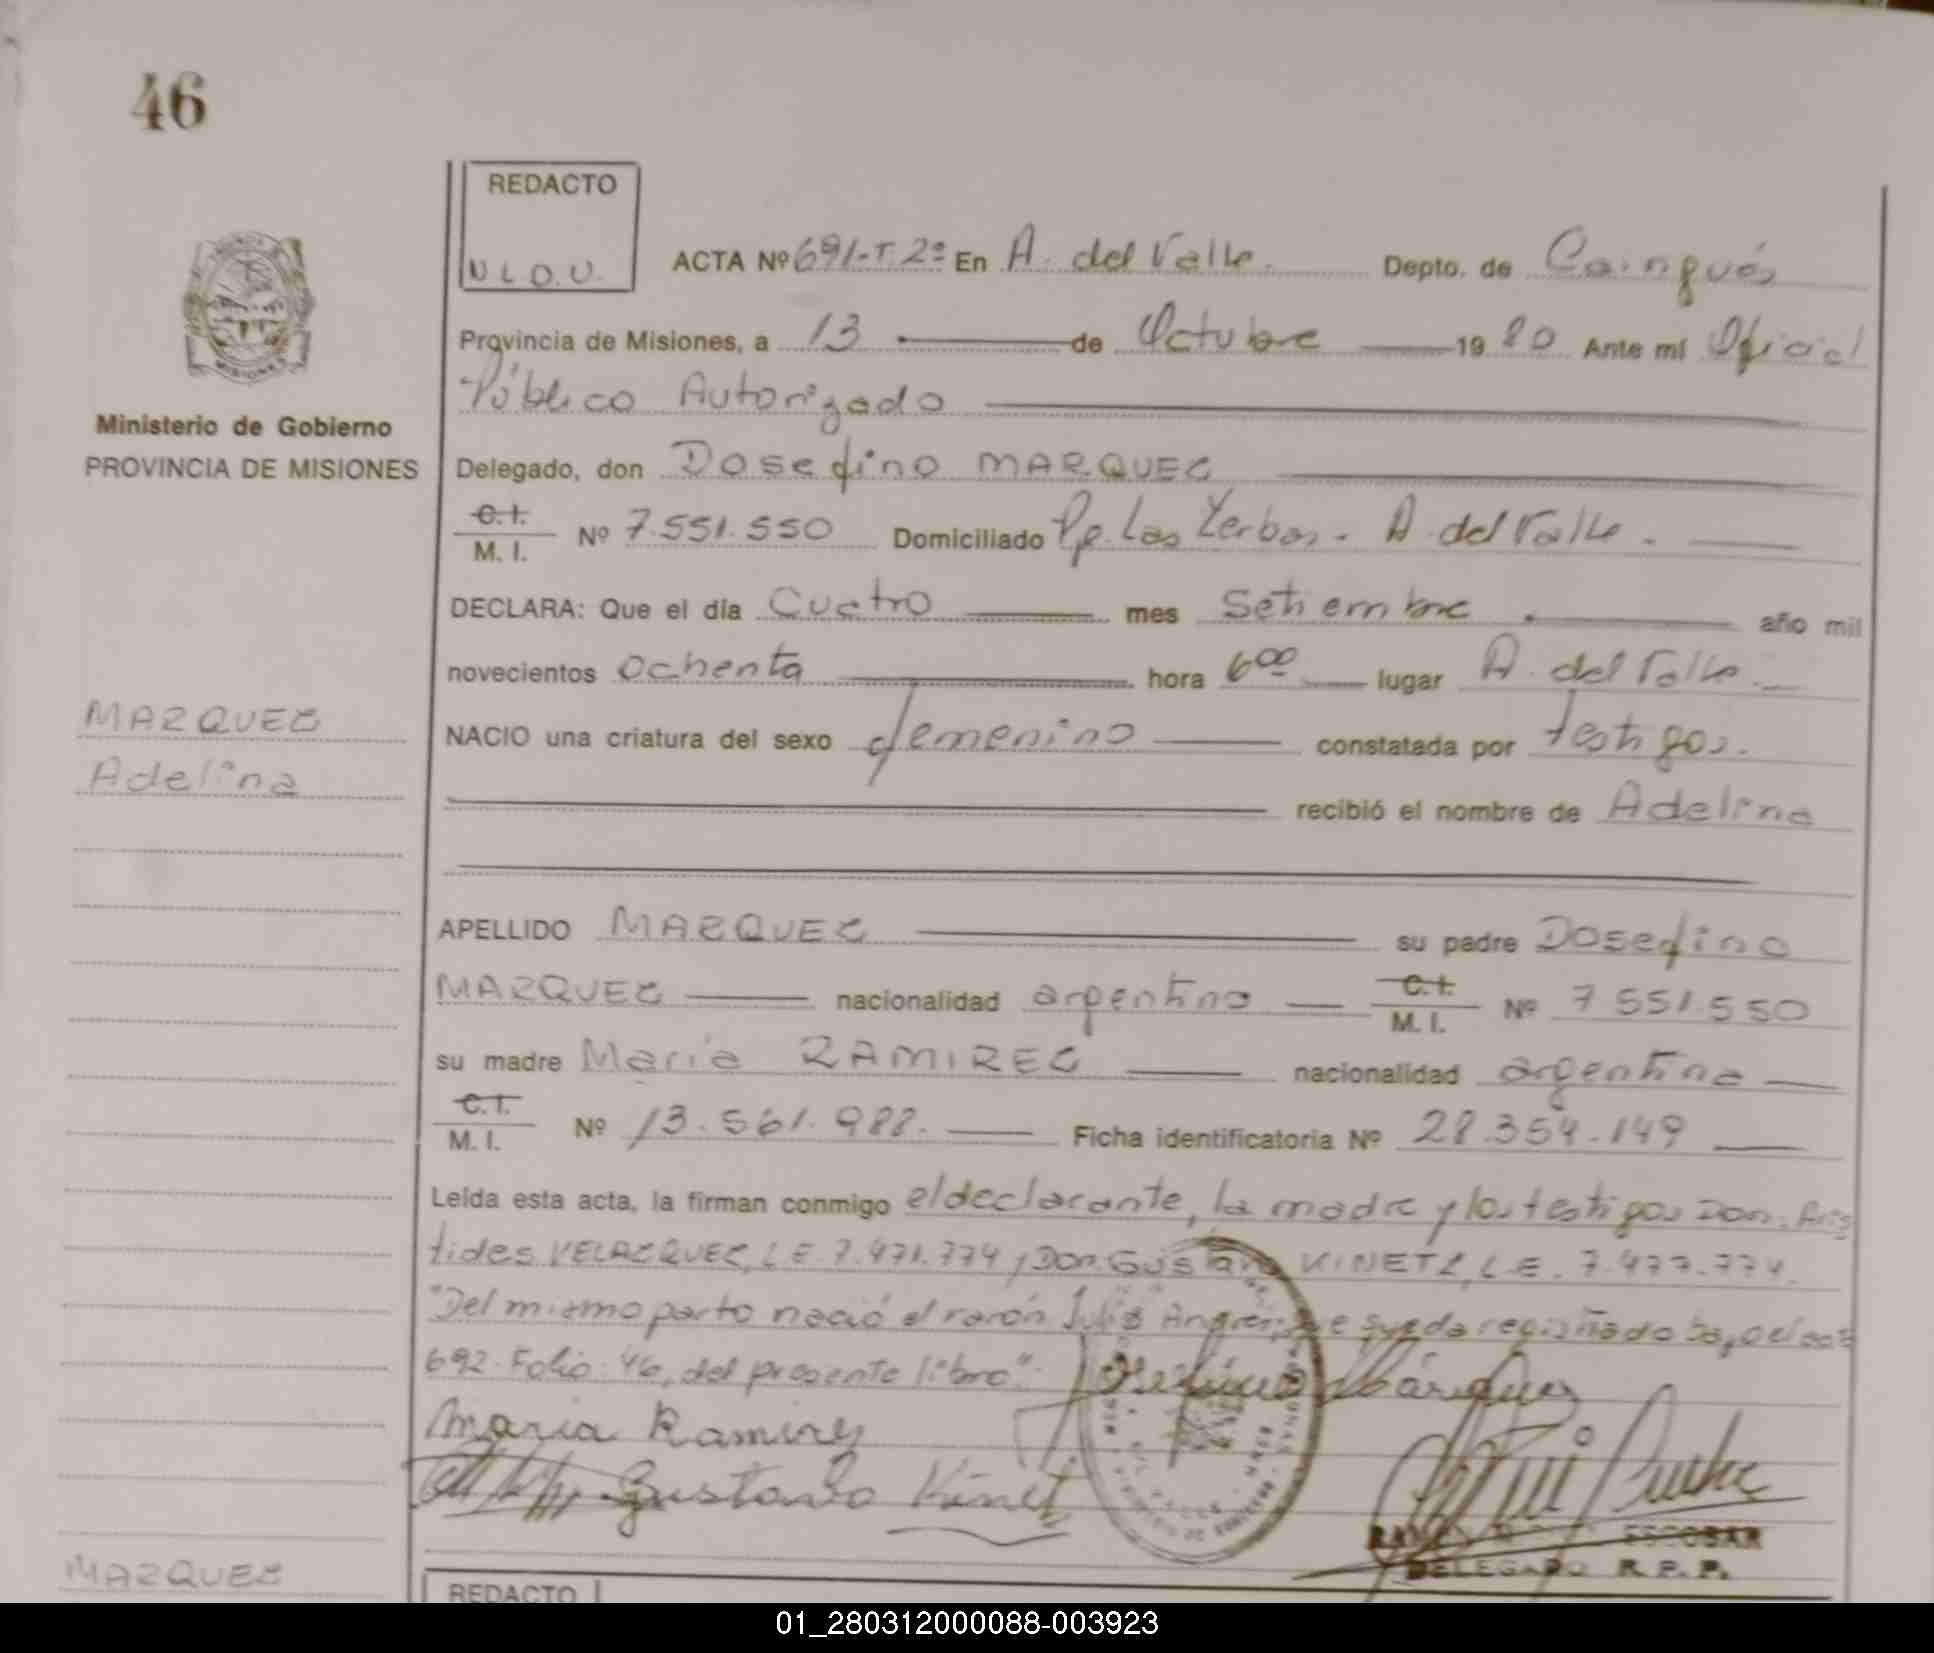 46
REDACTO
N L D. V.
ACTA Nº 691-T. 2º En A. del Valle. Depto. de Cainguás
Provincia de Misiones, a 13 de Octubre 1980 Ante mí Oficial
Público Autorizado
Ministerio de Gobierno
PROVINCIA DE MISIONES
Delegado, don Dosefino MARQUEZ
C.I.
M. I. Nº 7.551.550 Domiciliado Pje. Las Yerbas. A. del Valle.
DECLARA: Que el día Cuatro mes Setiembre año mil
novecientos ochenta hora 6 00 lugar A. del Valle.
MARQUEZ
Adelina
NACIO una criatura del sexo femenino constatada por testigos.
recibió el nombre de Adelina
APELLIDO MARQUEZ su padre Dosefino
MARQUEZ nacionalidad argentino C.I. M. I. Nº 7 551.550
su madre María RAMIREZ nacionalidad argentina
C.I.
M. I. Nº 13.561.988. Ficha identificatoria Nº 28.354.149
Leída esta acta, la firman conmigo el declarante, la madre y los testigos Don: Aris
tides VELAZQUEZ, L E. 7.471.774 y Don Gustavo KINETZ, L.E. 7.477.774.
"Del mismo parto nació el varón Julio que queda registrado bajo el
692. Folio: 46, del presente libro".
María Ramirez
Gustavo Kinet
ESCOBAR
DELEGADO R. P. P.
MARQUEZ
REDACTO
01_280312000088-003923